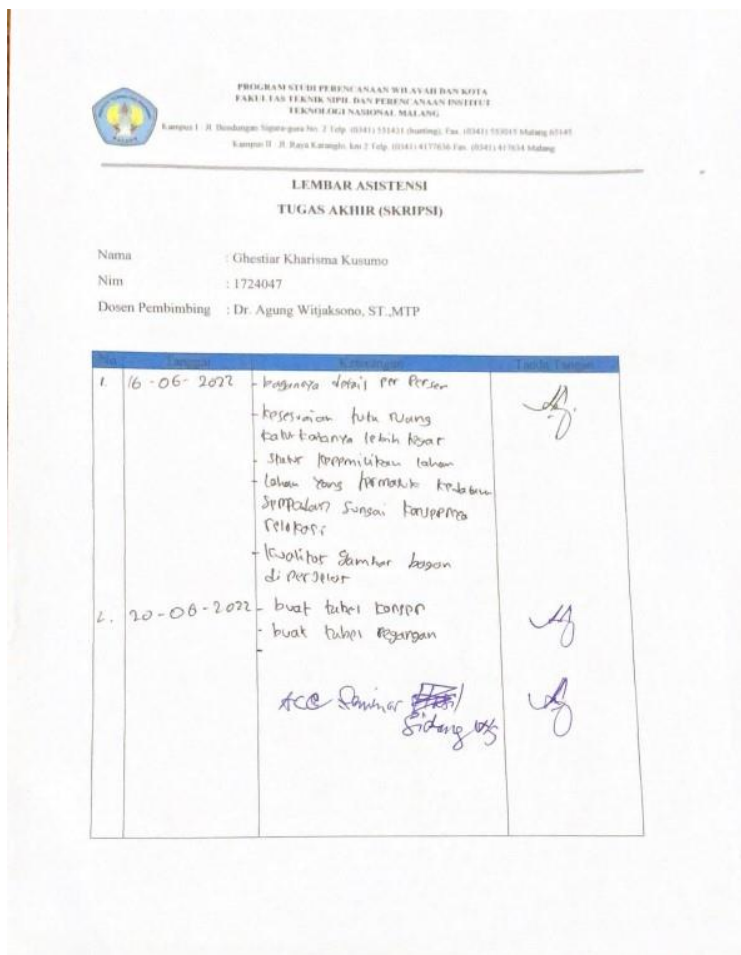 PROGRAM STUDI PERENCANAAN WILAYAH DAN KOTA
FAKULTAS TEKNIK SIPIL DAN PERENCANAAN INSTITUT
TEKNOLOGI NASIONAL MALANG
Kampus I : Jl. Bendungan Sigura-gura No. 2 Telp. (0341) 551431 (hunting), Fax. (0341) 553015 Malang 65145
Kampus II : Jl. Raya Karanglo, km 2 Telp. (0341) 417636 Fax. (0341) 417634 Malang
LEMBAR ASISTENSI
TUGAS AKHIR (SKRIPSI)
Nama : Ghestiar Kharisma Kusumo
Nim : 1724047
Dosen Pembimbing : Dr. Agung Witjaksono, ST.,MTP
No Tanggal Keterangan Tanda Tangan
1. 16-06-2022 - detail per
- kesesuaian tata ruang
lebih besar
- status kepemilikan lahan
- Lahan yang termasuk
sempadan sungai
relokasi
- kualitas gambar bagan
di perjelas
2. 20-06-2022 - buat tabel konsep
- buat tabel
-
ACC Seminar
Sidang